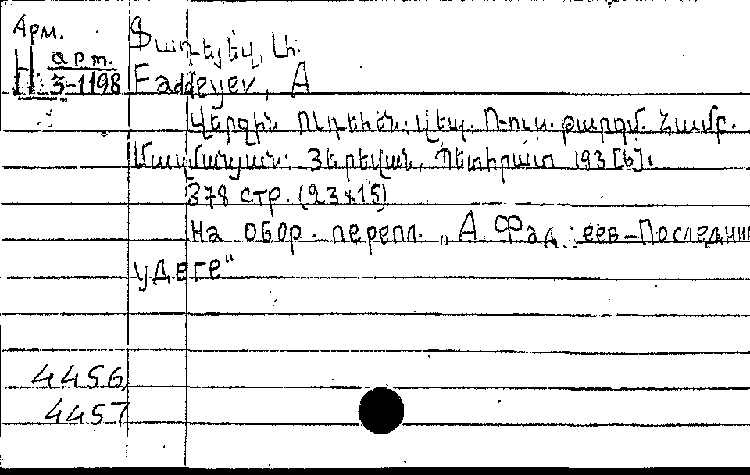 Арм.
H арт.
3-1198
Ֆադեյեվ, Ա.
Faddeyev, A
Վերջին Ուդեհեն. վեպ. Ռուս. թարգմ. Համբ.
Մազմանյան. Յերեվան, Պետհրատ 193[6].
378 стр. (23x15)
На обор. перепл. „А. Фадеев-Последний
удеге“
4456
4457